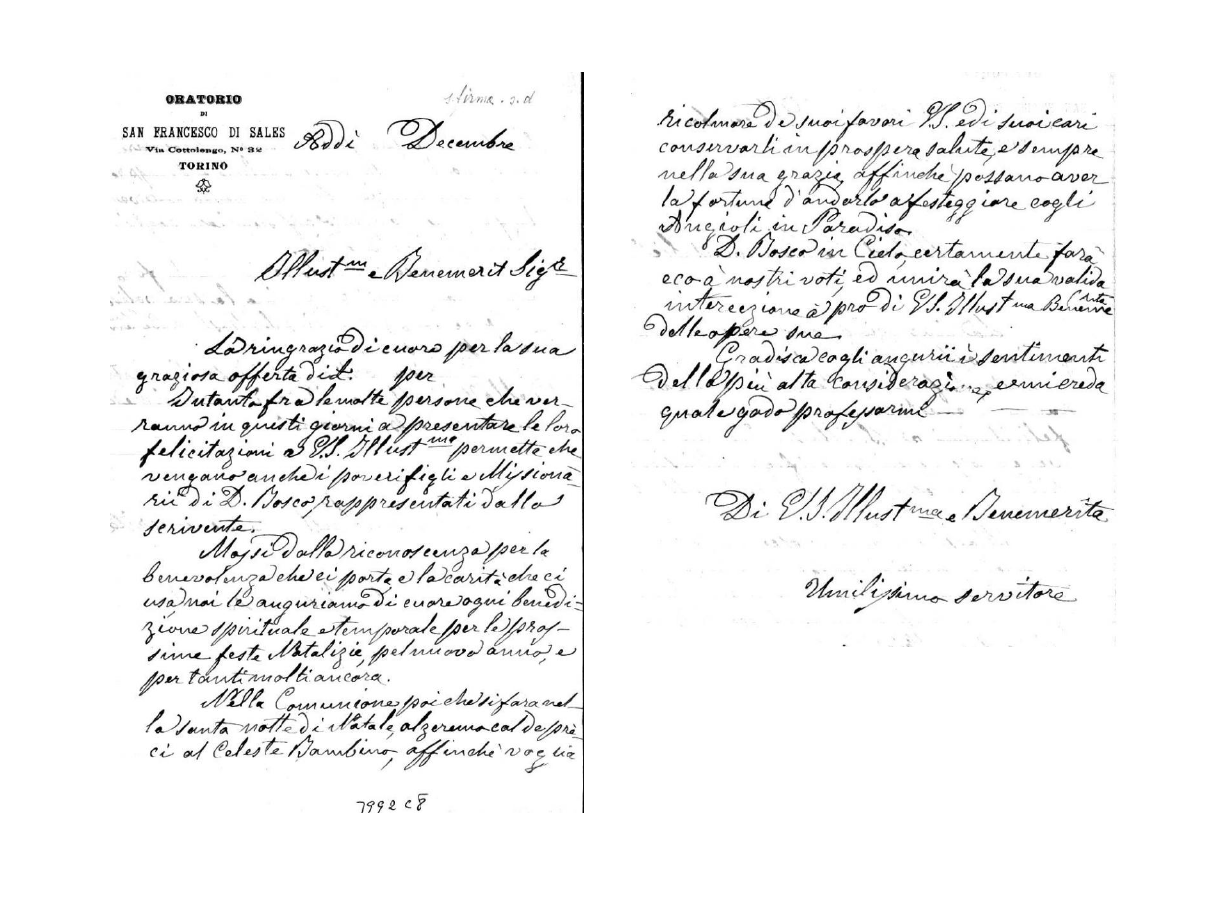 ORATORIO
DI
SAN FRANCESCO DI SALES
Via Cottolengo, N° 32
TORINO
s. firma. s. d
Addì Decembre
Illust.ma e Benemerit Sigr
La ringrazio di cuore per la sua
graziosa offerta di £. per
Intanto fra le molte persone che ver-
ranno in questi giorni a presentare le loro
felicitazioni a V.S. Illustma permetta che
vengano anche i poveri figli e Missiona-
rii di D. Bosco, rappresentati dallo
scrivente.
Mossi dalla riconoscenza per la
benevolenza che ci porta, e la carità che ci
usa noi le auguriamo di cuore ogni benedi-
zione spirituale e temporale per le pros-
sime feste Natalizie, pel nuovo anno, e
per tanti molti ancora.
Nella Comunione poi che si fara nel-
la santa notte di Natale, alzeremo calde pre-
ci al Celeste Bambino, affinchè voglia
7992 C8
ricolmare de suoi favori V.S. e di suoi cari
conservarli in prospera salute, e sempre
nella sua grazia, affinchè possano aver
la fortuna d'andarlo a festeggiare cogli
Angioli in Paradiso.
D. Bosco in Cielo, certamente farà
eco a' nostri voti, ed unirà la sua valida
intercezione a pro di V.S. Illustma Beneme nta
delle opere sue.
Gradisca cogli augurii i sentimenti
della più alta considerazione, e mi creda
quale godo professarmi
Di V.S. Illustma e Benemerita
Umilissimo servitore